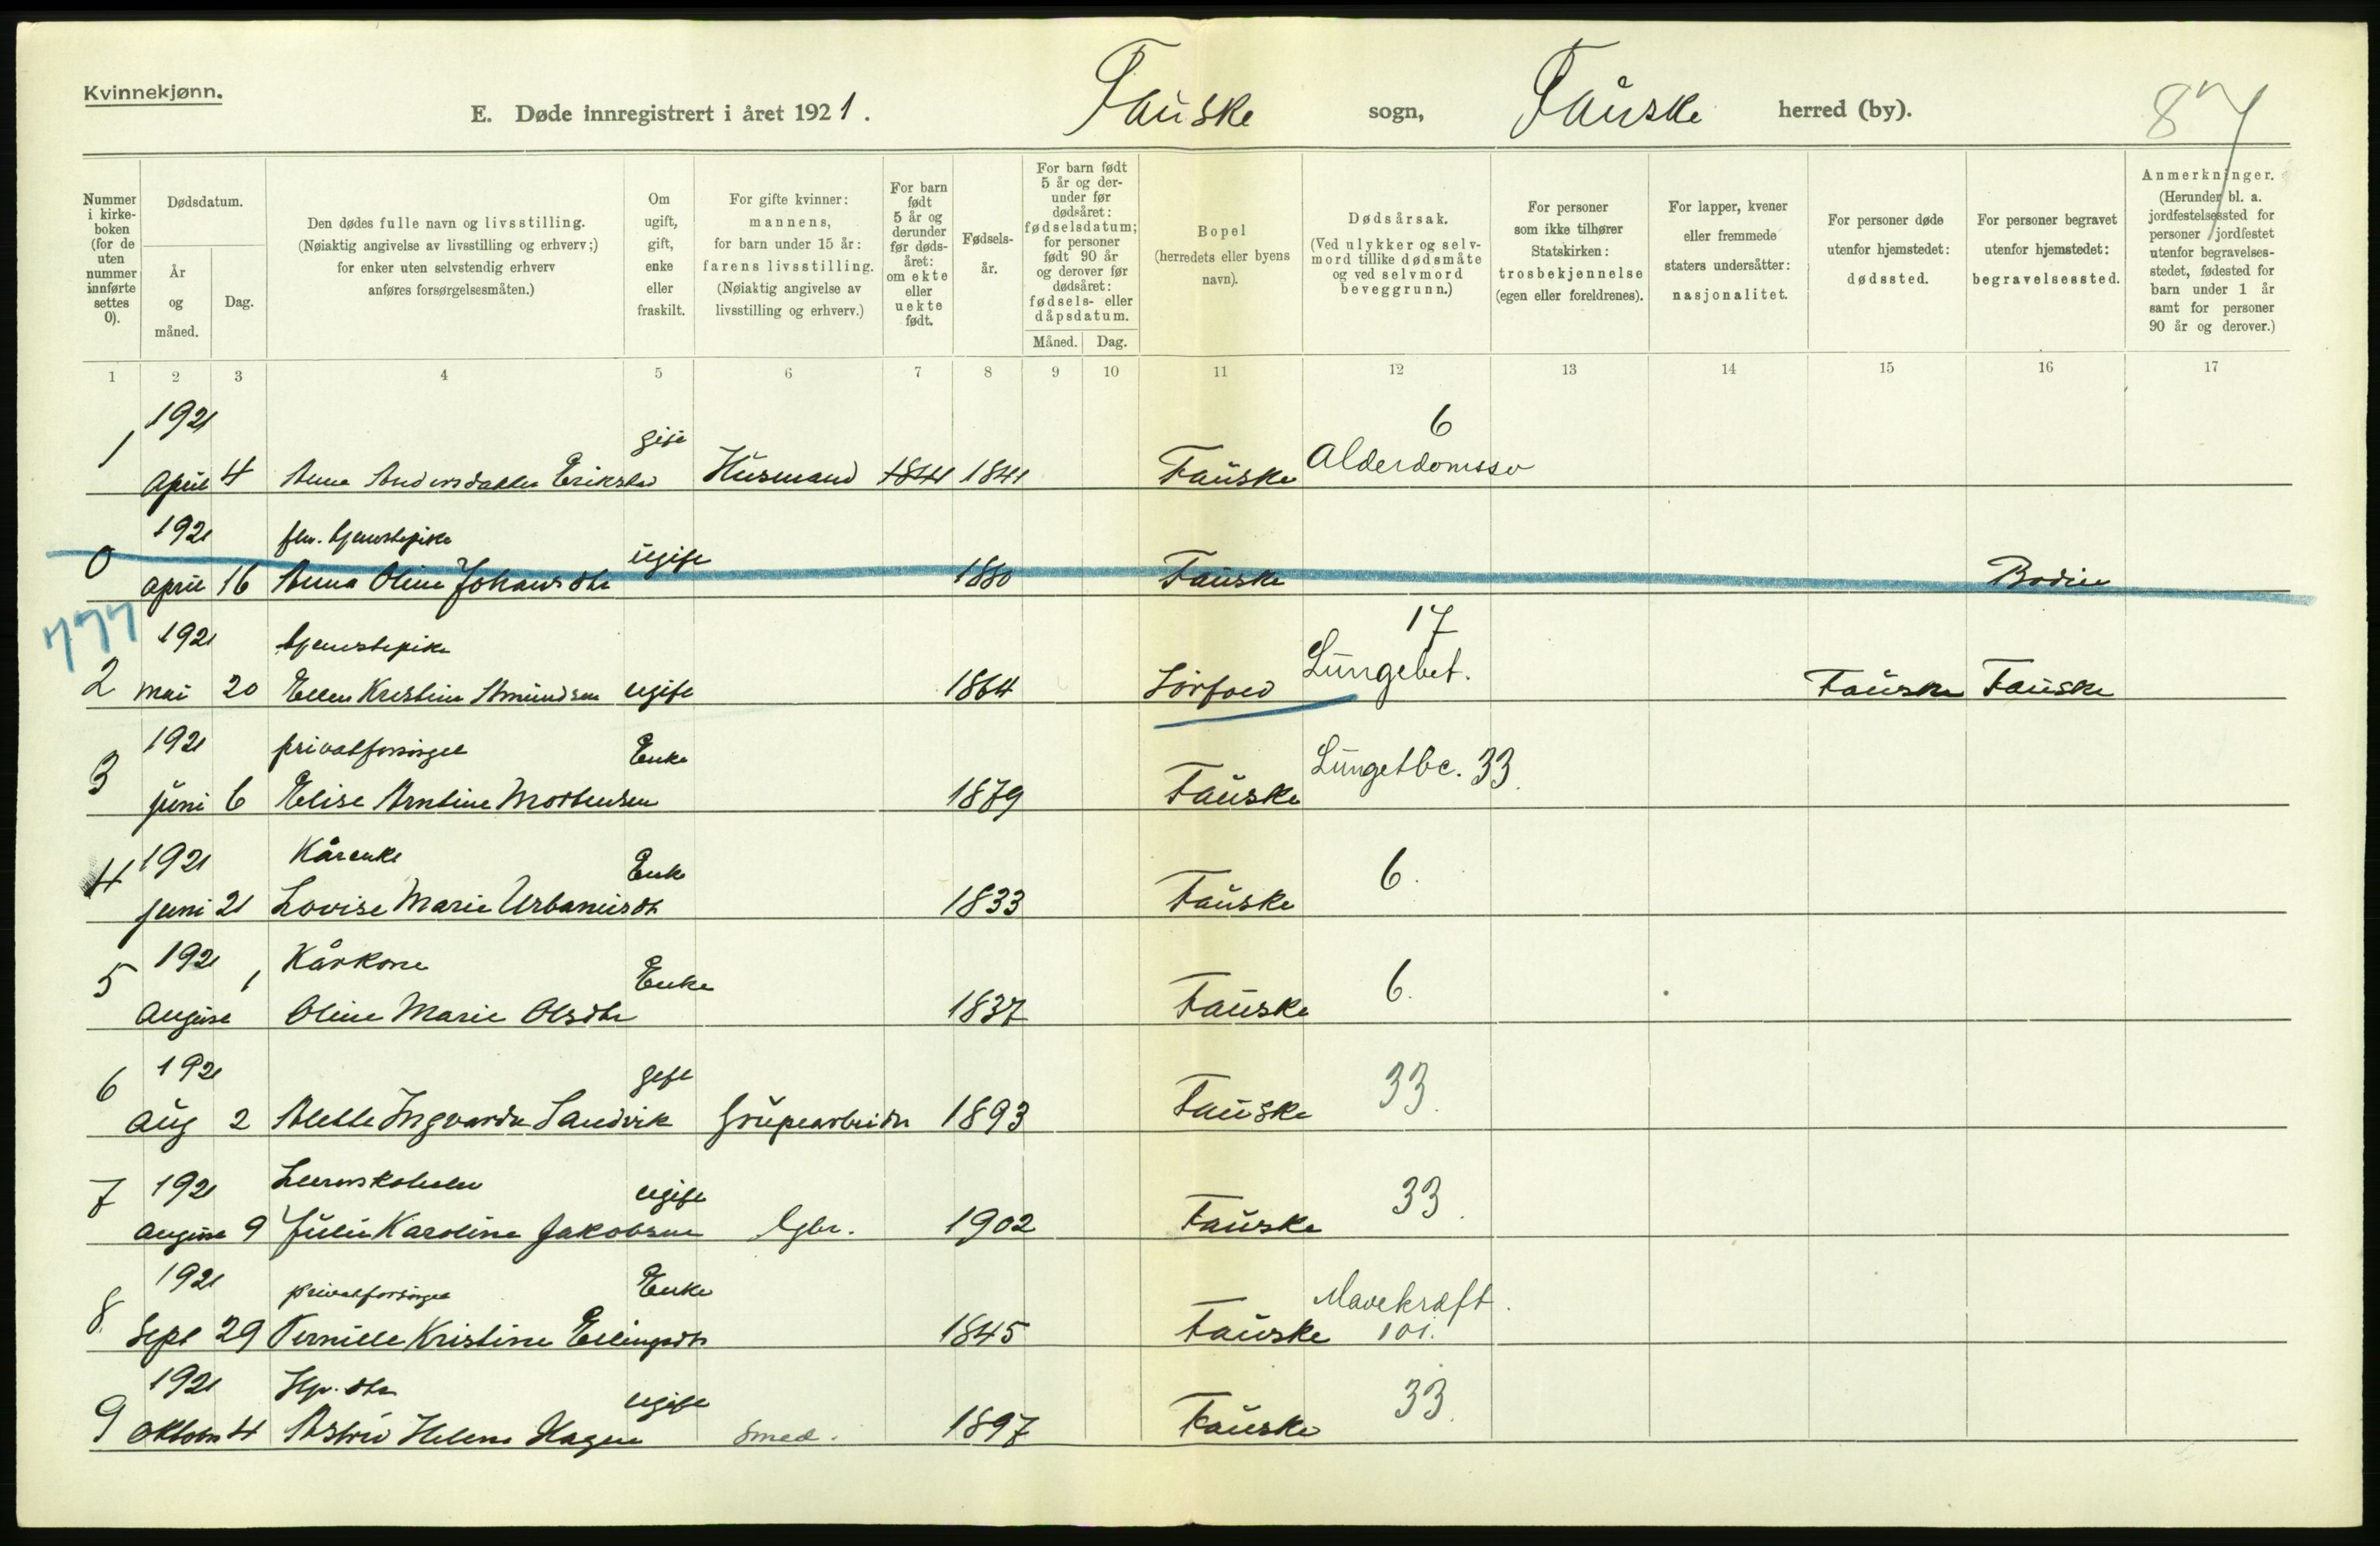 Kvinnekjønn.
E. Døde innregistrert i året 1921. Fauske sogn, Fauske herred (by). 87
Nummer i kirke-boken (for de uten nummer innførte settes 0).
Dødsdatum.
År og måned.
Dag.
Den dødes fulle navn og livsstilling.
(Nøiaktig angivelse av livsstilling og erhverv;)
for enker uten selvstendig erhverv
anføres forsørgelsesmåten.)
Om ugift, gift, enke eller fraskilt.
For gifte kvinner: mannens,
for barn under 15 år:
farens livsstilling.
(Nøiaktig angivelse av
livsstilling og erhverv.)
For barn født 5 år og derunder før døds-året: om ekte eller uekte født.
Fødsels-år.
For barn født 5 år og der-under før dødsåret: fødselsdatum; for personer født 90 år og derover før dødsåret: fødsels- eller dåpsdatum.
Måned. Dag.
Bopel
(herredets eller byens navn).
Dødsårsak.
(Ved ulykker og selv-mord tillike dødsmåte og ved selvmord beveggrunn.)
For personer som ikke tilhører Statskirken: trosbekjennelse (egen eller foreldrenes).
For lapper, kvener eller fremmede staters undersåtter: nasjonalitet.
For personer døde utenfor hjemstedet: dødssted.
For personer begravet utenfor hjemstedet: begravelsessted.
Anmerkninger.
(Herunder bl. a. jordfestelsessted for personer jordfestet utenfor begravelses-stedet, fødested for barn under 1 år samt for personer 90 år og derover.)
1 2 3 4 5 6 7 8 9 10 11 12 13 14 15 16 17
1921 gift 6
1 April 4 Anna Andersdatter Husmand 1844 1841 Fauske Alderdomssv
1921 tjenestepike
0 April 16 Anna Oline Johansdtr ugift 1880 Fauske Bodin
777
1921 tjenestepike 17
2 mai 20 Ellen Kristine Amundsen ugift 1864 Sörfold Lungebet. Fauske Fauske
1921 privatforsörget Enke Lungetbc. 33
3 juni 6 Elise Arntine Mortensen 1879 Fauske
1921 Kårenke Enke 6.
4 juni 21 Lovise Marie Urbanusdt 1833 Fauske
1921 Kårkone Enke 6.
5 August 1 Oline Marie Olsdtr 1837 Fauske
1921 gift 33.
6 Aug 2 Alette Ingvarda Sandvik Grubearbeider 1893 Fauske
1921 ugift 33.
7 August 9 Julie Karoline Jakobsen Gbr. 1902 Fauske
1921 privatforsörget Enke Mavekræft.
8 Sept 29 Pernille Kristine Ellingsdtr 1845 Fauske 101.
1921 Hp. dtr ugift 33.
9 Oktober 4 Astrid Helene Hagen Smed. 1897 Fauske